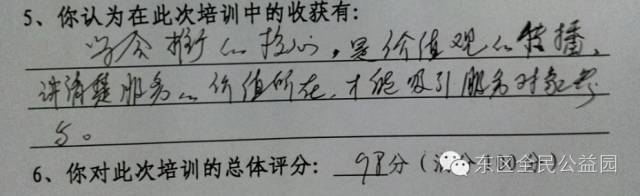 5、你认为在此次培训中的收获有:
学会推行的核心,是价值观的传播,
讲清楚服务的价值所在,才能吸引服务对象参
与。
6、你对此次培训的总体评分: 98分(满分100分)
东区全民公益园